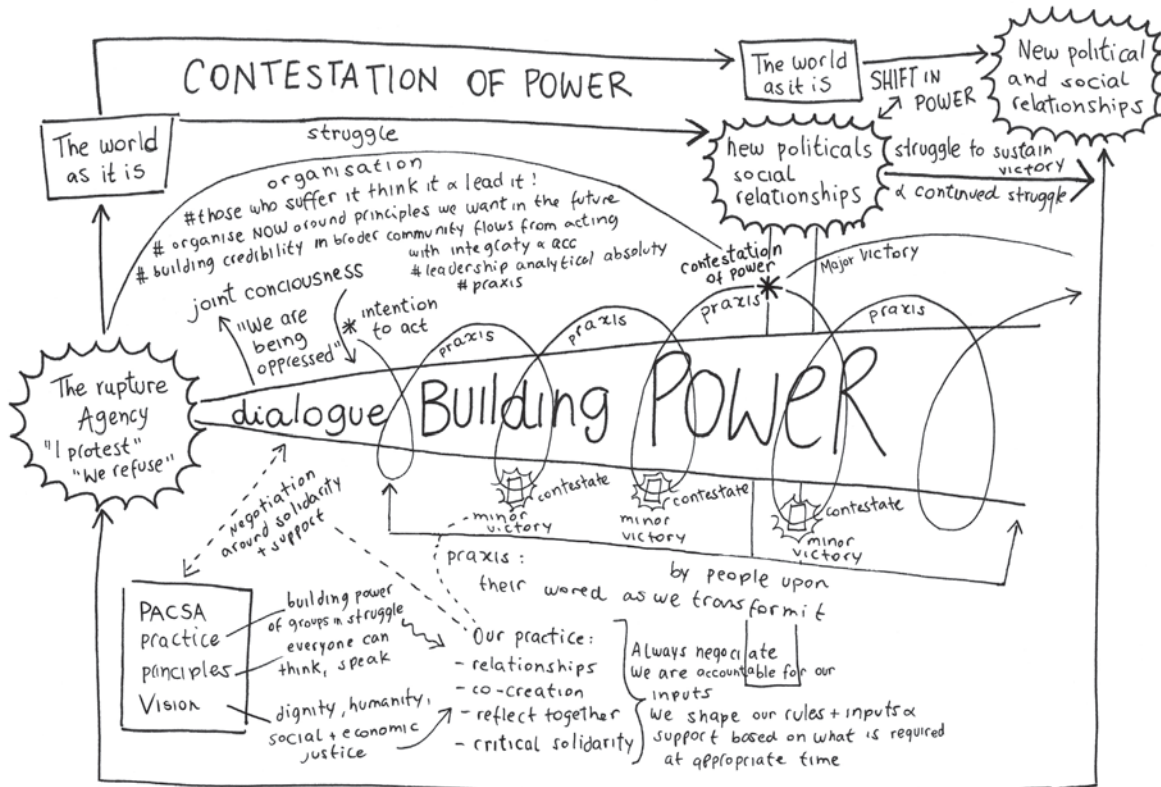 CONTESTATION OF POWER
The world
as it is
The world
as it is
SHIFT IN
POWER
New political
and social
relationships
struggle
new politicals
social
relationships
struggle to sustain
victory
& continued struggle
organisation
#those who suffer it think it & lead it!
# organise NOW around principles we want in the future
# building credibility in broder community flows from acting
with integraty & acc
#leadership analytical absoluty
#praxis
joint conciousness
"We are
being
oppressed"
* intention
to act
contestation
of power
*
Major victory
praxis
praxis
praxis
praxis
The rupture
Agency
"I protest"
"We refuse"
dialogue Building POWeR
contestate
minor
victory
contestate
minor
victory
contestate
minor
victory
negotiation
around solidarity
+ support
praxis:
by people upon
their wored as we transformit
PACSA
practice
principles
Vision
building power
of groups in struggle
everyone can
think, speak
dignity, humanity,
social + economic
justice
Our practice:
- relationships
- co-creation
- reflect together
- critical solidarity
Always negociate
We are accountable for our
inputs
We shape our rules + inputs &
support based on what is required
at appropriate time